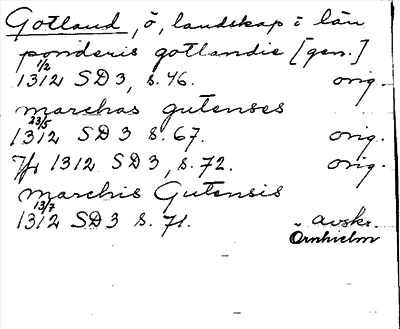 Gotland, ö, landskap i län
ponderis gotlandie [gen.]
1/2
1312 SD 3, s. 46. orig.
marchas gutenses
23/5
1312 SD 3 s. 67. orig.
7/7 1312 SD 3, s. 72. orig.
marchis Gutensis
13/7
1312 SD 3 s. 71. avskr.
Örnhielm